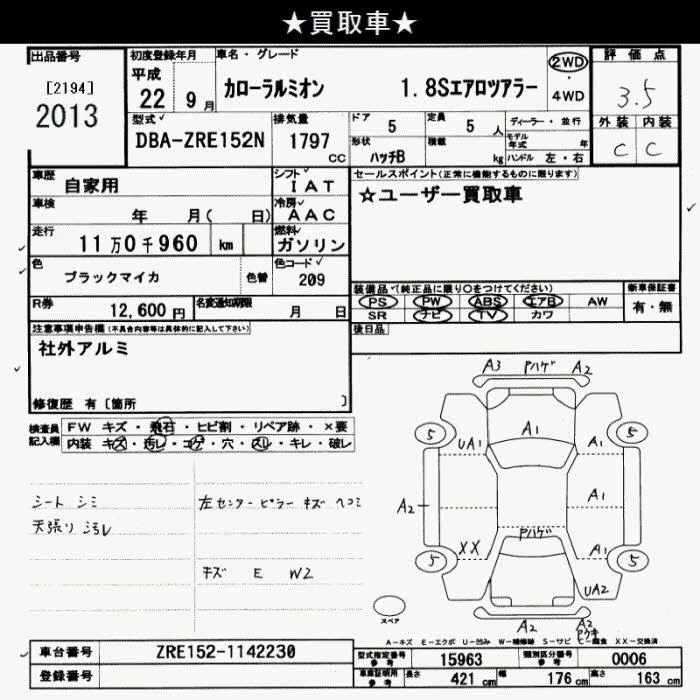 ★買取車★
出品番号 初度登録年月 車名・グレード 2WD 評価点
[2194] 平成 カローラルミオン 1.8Sエアロツアラー ・ 3.5
2013 22 9月 4WD
型式 排気量 ドア 5 定員 5人 ディーラー・並行 外装 内装
DBA-ZRE152N 1797cc 形状 ハッチB 積載 kg モデル年式 年 C C
ハンドル 左・右
車歴 自家用 シフト IAT セールスポイント(正常に機能するものに限ります)
車検 年 月( 日) 冷房 AAC ☆ユーザー買取車
走行 11万0千960 km 燃料 ガソリン
色 ブラックマイカ 色替 色コード 209
装備品(純正品に限り○をつけてください) 新車保証書
R券 12,600円 名変通知期限 月 日 PS PW ABS エアB AW 有・無
SR ナビ TV カワ
注意事項申告欄(不具合内容等は具体的に記入して下さい) 後日品
社外アルミ
修復歴 有〔箇所 〕
検査員記入欄 FW キズ・飛石・ヒビ割・リペア跡・×要
内装 キズ・汚レ・コゲ・穴・スレ・キレ・破レ
A3 Pハゲ A2
5 5
UA1 A1 A1
A2 A1
XX Pハゲ A1
5 5
UA2
A2 A2
シート シミ 左センターピラー キズ ヘコミ
天張り 汚レ
キズ E W2
スペア
A-キズ E-エクボ U-凹み W-補修跡 S-サビ C-腐食 XX-交換済
車台番号 ZRE152-1142230 型式指定番号 参考 15963 類別区分番号 参考 0006
登録番号 車庫証明用 参考 長さ 421cm 幅 176cm 高さ 163cm